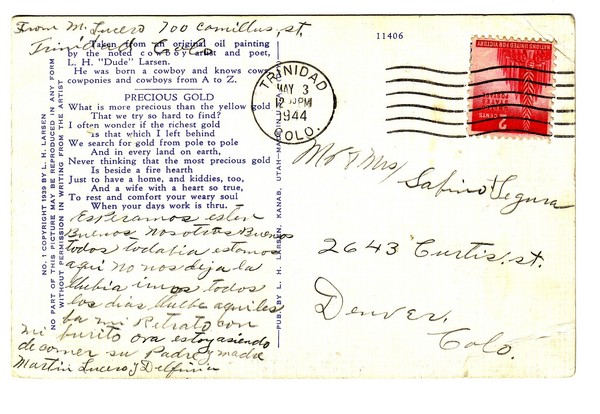 From M. Lucero 700 Camillus, st.
Trinidad Colo.
Taken from an original oil painting
by the noted cowboy artist and poet,
L. H. "Dude" Larsen.
He was born a cowboy and knows cows,
cowponies and cowboys from A to Z.
PRECIOUS GOLD
What is more precious than the yellow gold
That we try so hard to find?
I often wonder if the richest gold
is that which I left behind
We search for gold from pole to pole
And in every land on earth,
Never thinking that the most precious gold
Is beside a fire hearth
Just to have a home, and kiddies, too,
And a wife with a heart so true,
To rest and comfort your weary soul
When your days work is thru.
Esperamos esten
Buenos nosotros Buenos
todos todabia estamos
aqui no nos deja la
llubia imos todos
los dias llube aqui les
ba mi Retrato con
mi burito ora estoy asiendo
de comer su Padre y madre
Martin Lucero y Delfinia
NO. 1 COPYRIGHT 1939 BY L. H. LARSEN
NO PART OF THIS PICTURE MAY BE REPRODUCED IN ANY FORM
WITHOUT PERMISSION IN WRITING FROM THE ARTIST
PUB. BY L. H. LARSEN, KANAB, UTAH—MADE IN U.
11406
TRINIDAD
MAY 3
PM
1944
COLO.
NATIONS UNITED FOR VICTORY
UNITED
STATES
POSTAGE
2 CENTS
Mr & Mrs Sabino Segura
2643 Curtis. st.
Denver,
Colo.